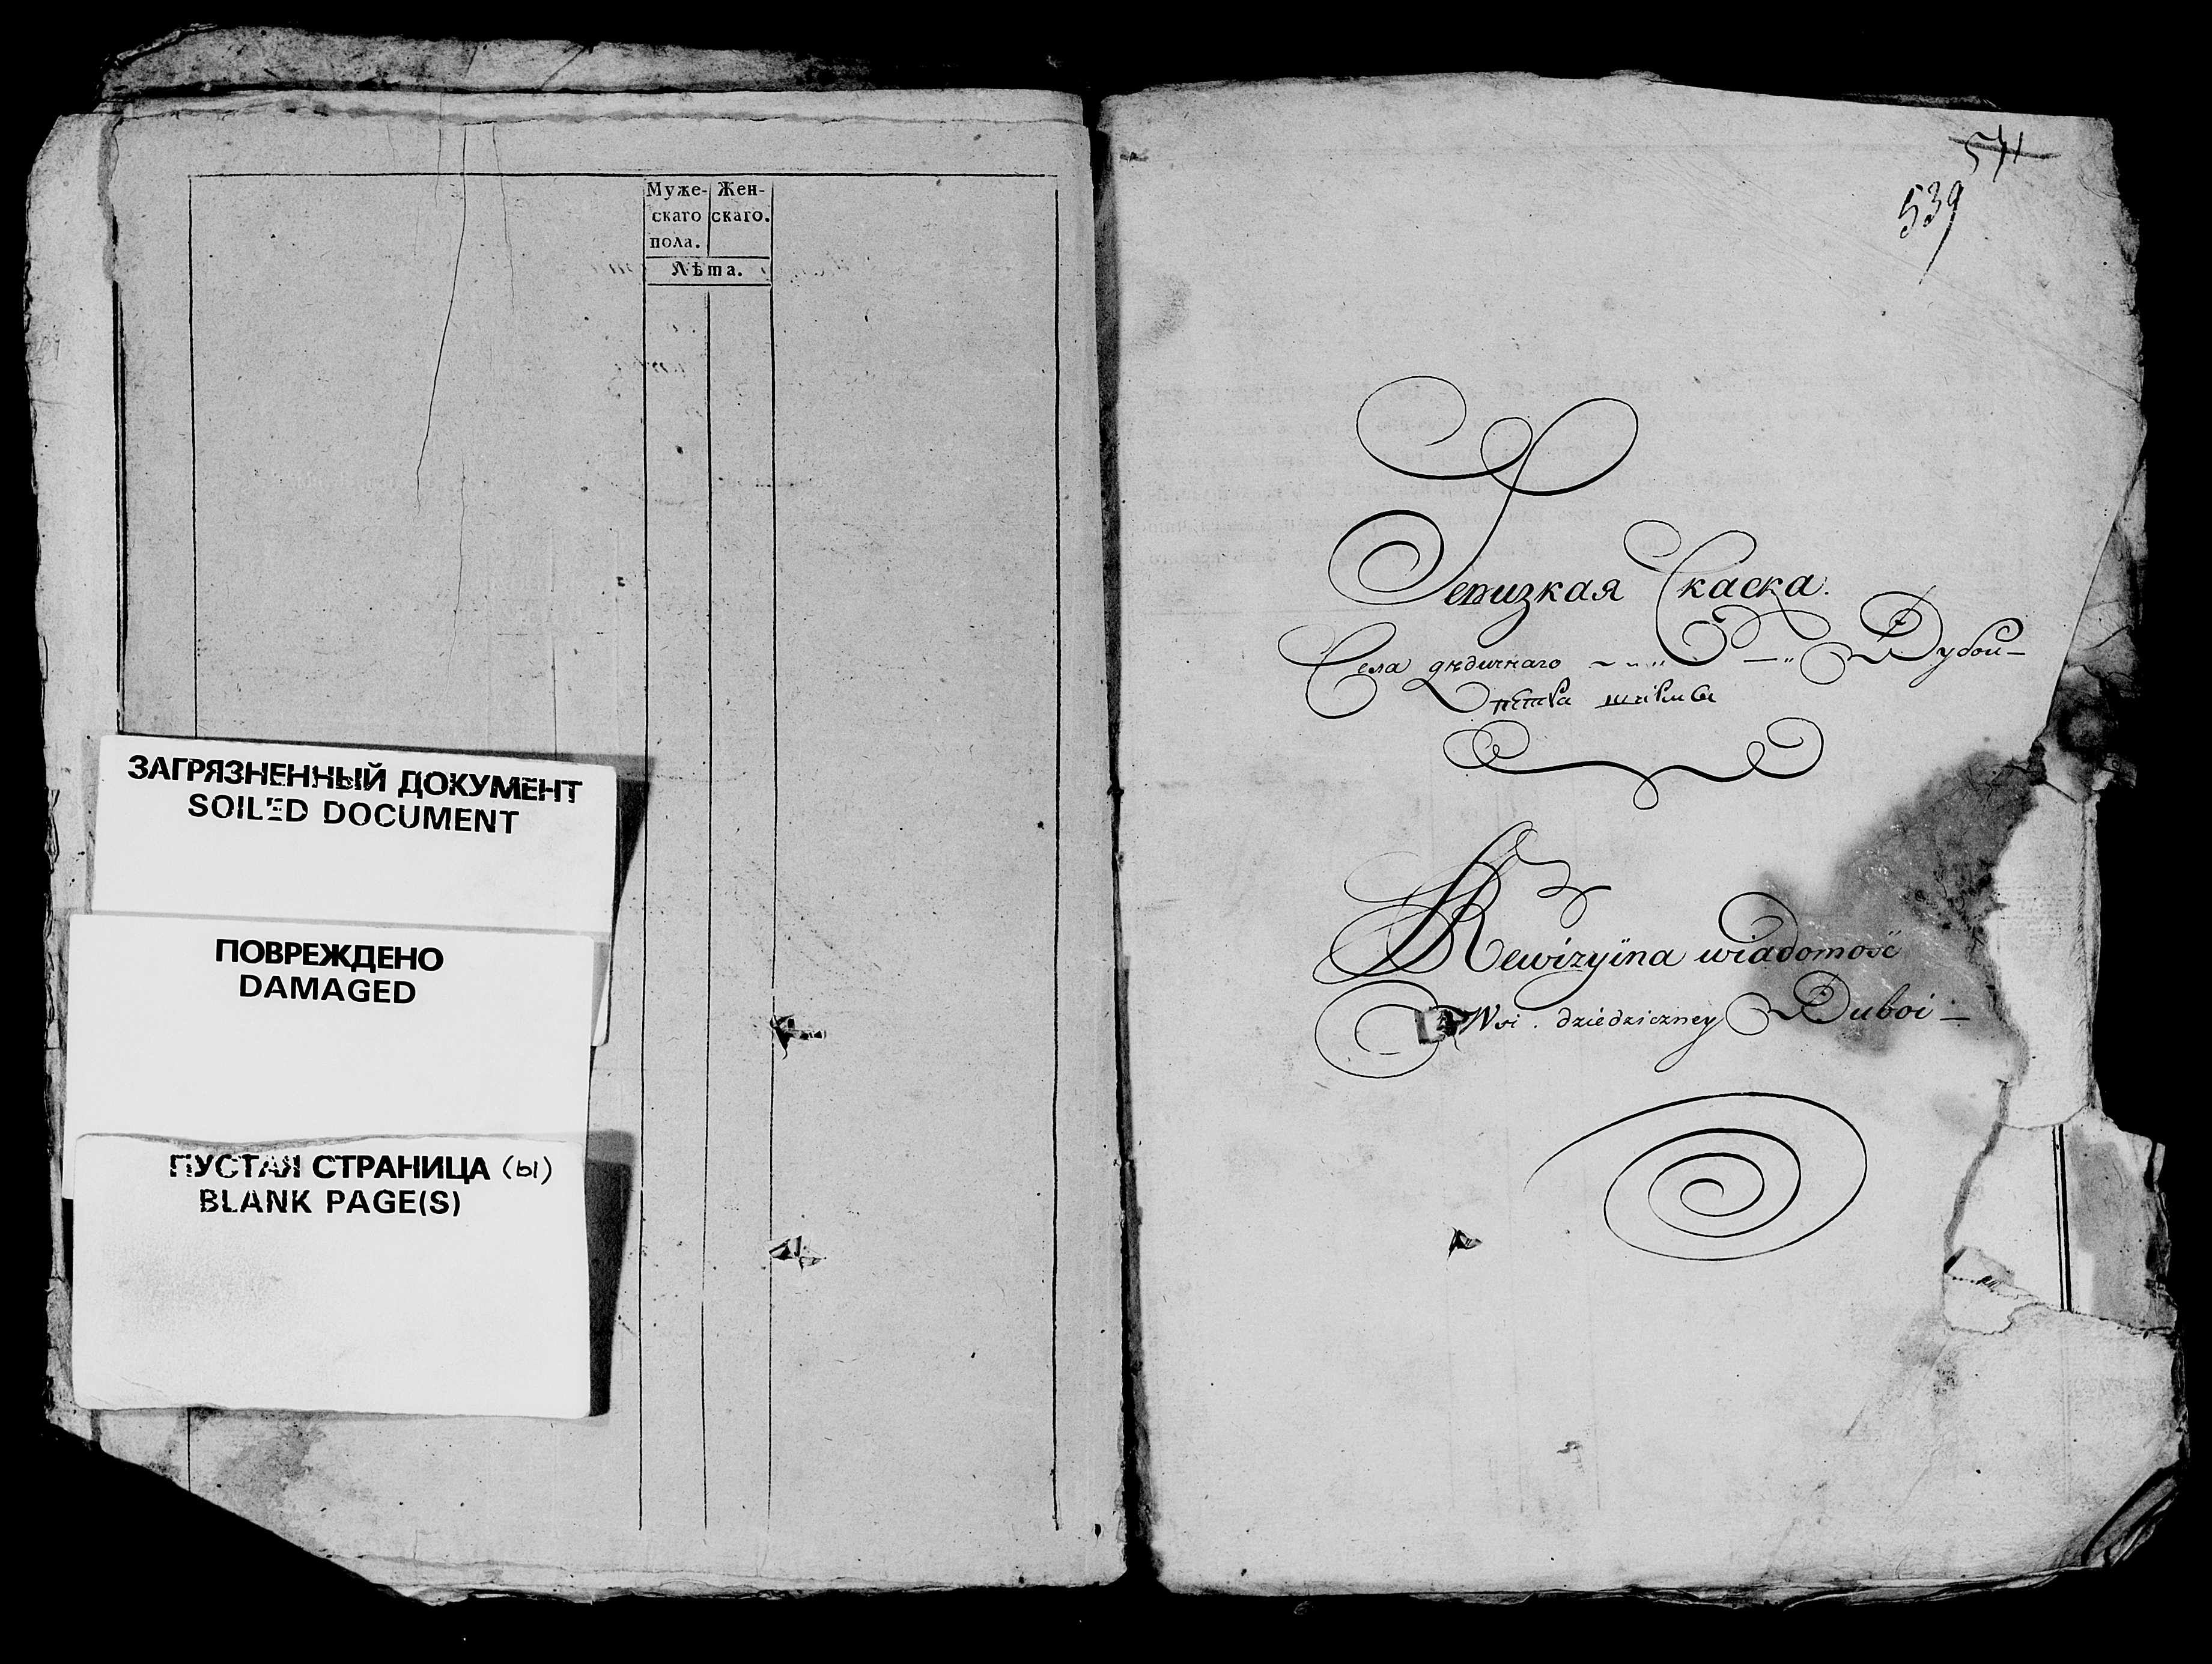 Муже- Жен-
скаго скаго.
пола.
Лѣта.
ЗАГРЯЗНЕННЫЙ ДОКУМЕНТ
SOILED DOCUMENT
ПОВРЕЖДЕНО
DAMAGED
ПУСТАЯ СТРАНИЦА (ы)
BLANK PAGE(S)
541
539
Скаска.
Села дѣдичнаго Дубои
Rewizyina wiadomość
Wsi dziedziczney Duboi